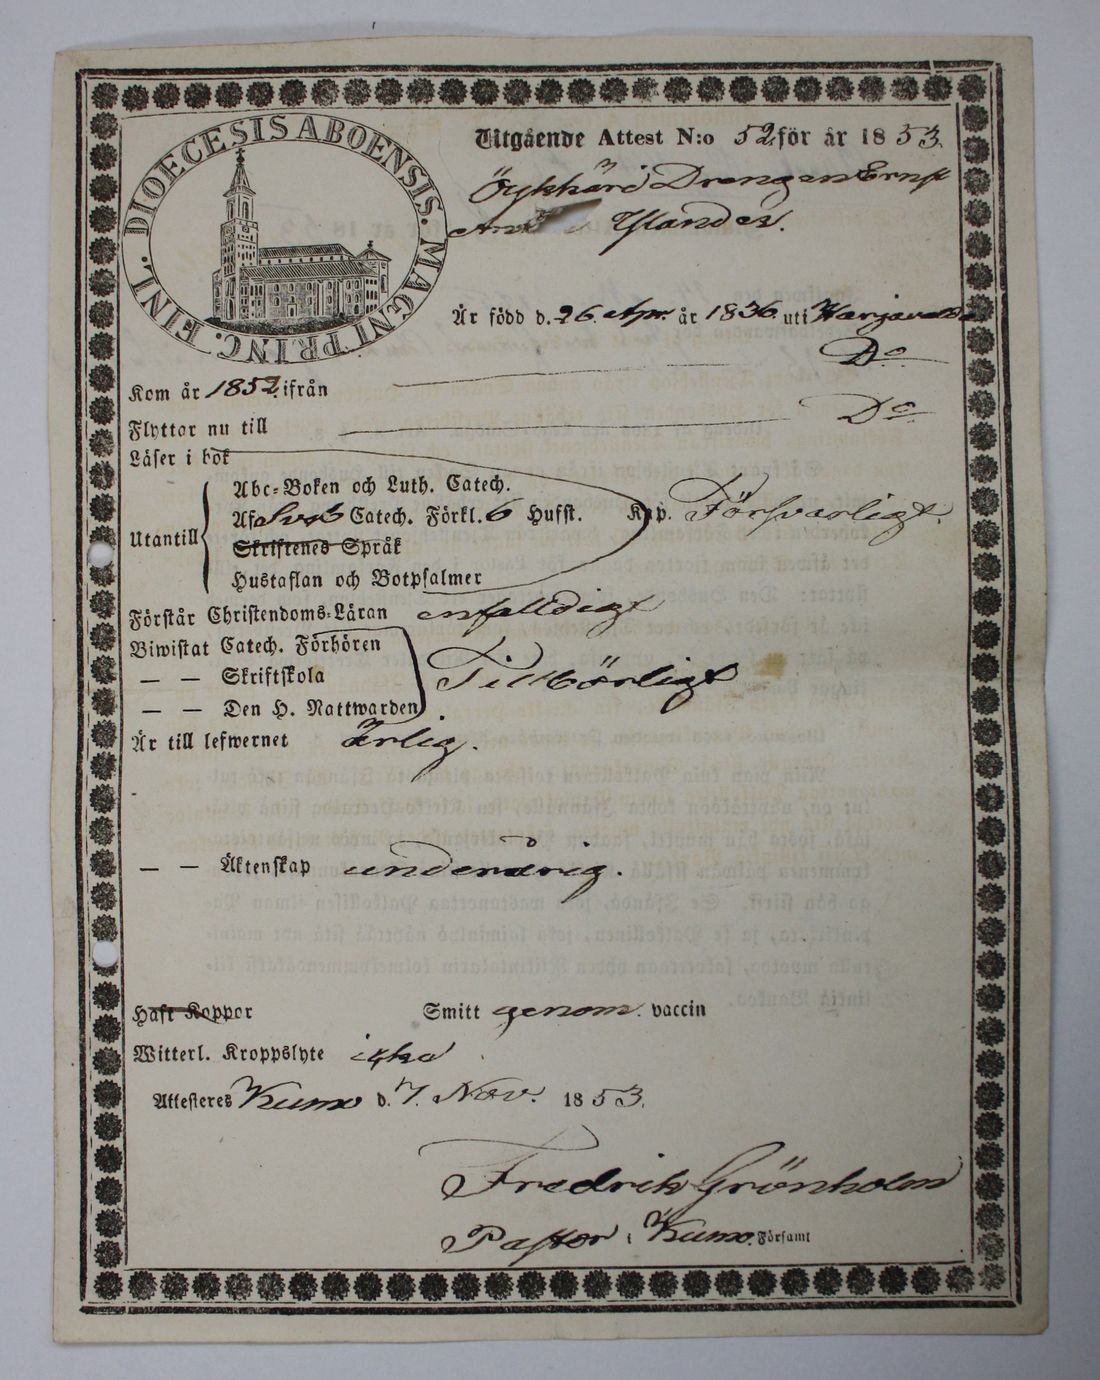 DIOECESIS ABOENSIS. MAGNI PRINC. FINL.
Utgående Attest N:o 52 för år 1853.
Öykkäri Drengen Ernst
Ylander.
Är född d. 26. Apr. år 1836. uti Harjavalda
Kom år 1852 ifrån Do
Flyttar nu till Do
Läser i bok
Utantill
Abc-Boken och Luth. Catech.
Af Sveb Catech. Förkl. 6 Hufst. Kap. Försvarligt.
Skriftenes Språk
Hustaflan och Botpsalmer
Förstår Christendoms-Läran enfalldigt
Biwistat Catech. Förhören
— — Skriftskola Tillbörligt
— — Den H. Nattwarden
Är till lefwernet Ärlig.
— — Äktenskap underårig.
Haft Koppor Smitt genom vaccin
Witterl. Kroppslyte icke
Attesteres Kumo d. 7. Nov. 1853.
Fredrik Grönholm
Pastor i Kumo Församl